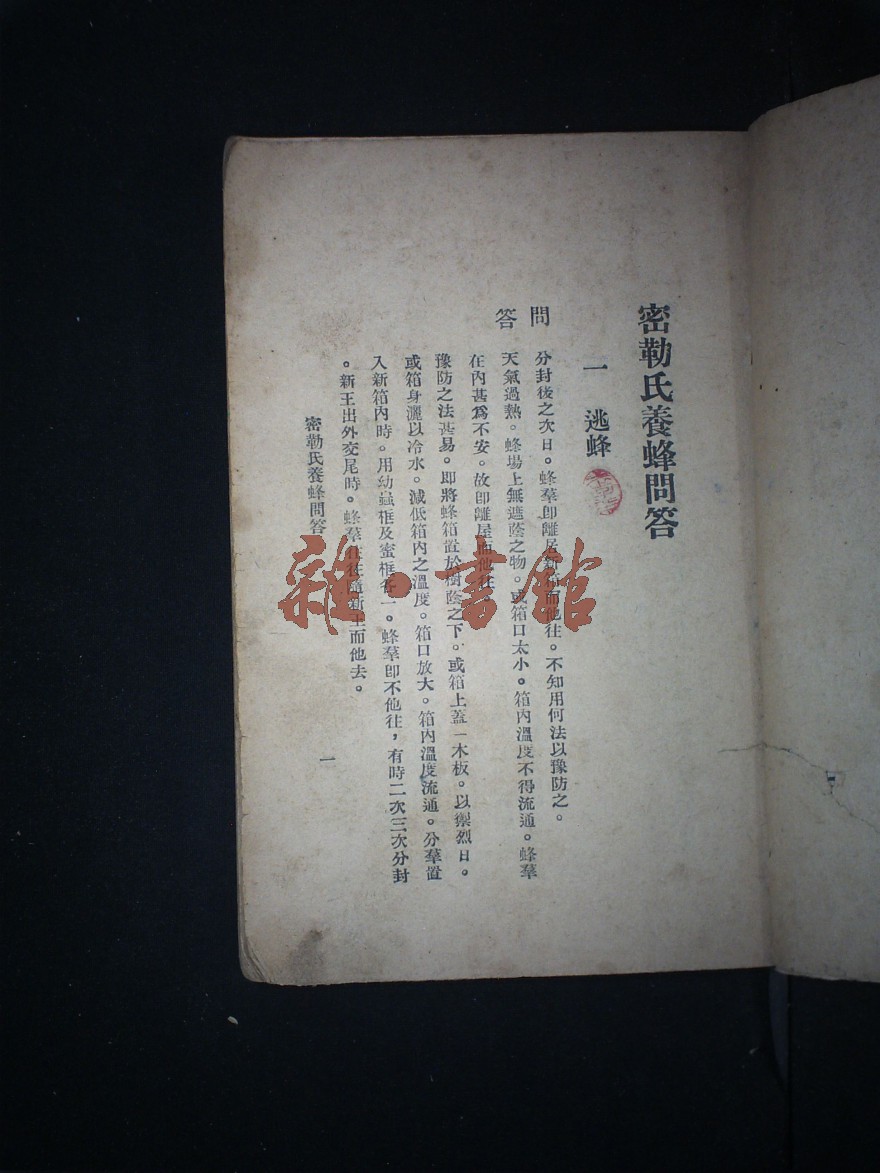 密勒氏養蜂問答
一　逃蜂
問　分封後之次日。蜂羣卽離居新箱而他往。不知用何法以豫防之。
答　天氣過熱。蜂場上無遮蔭之物。或箱口太小。箱內溫度不得流通。蜂羣
在內甚爲不安。故卽離屋而他往。
豫防之法甚易。卽將蜂箱置於樹蔭之下。或箱上蓋一木板。以禦烈日。
或箱身灑以冷水。減低箱內之溫度。箱口放大。箱內溫度流通。分羣置
入新箱內時。用幼蟲框及蜜框各一。蜂羣卽不他往，有時二次三次分封
。新王出外交尾時。蜂羣往往隨新王而他去。
密勒氏養蜂問答
一
雜·書館